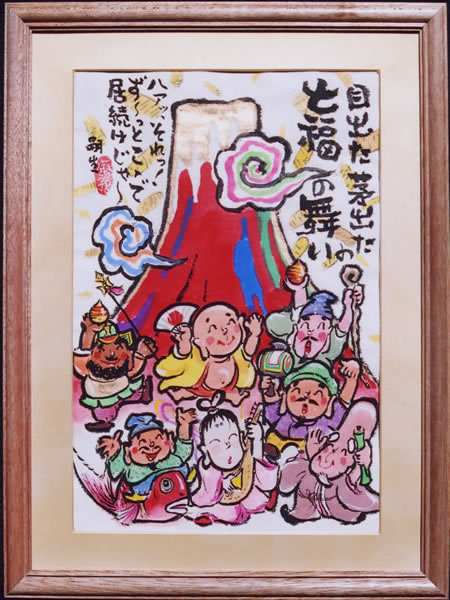 目出た芽出たの
七福の舞い
ハアッ、それっ!
ず〜っとここで
居続けじゃ〜